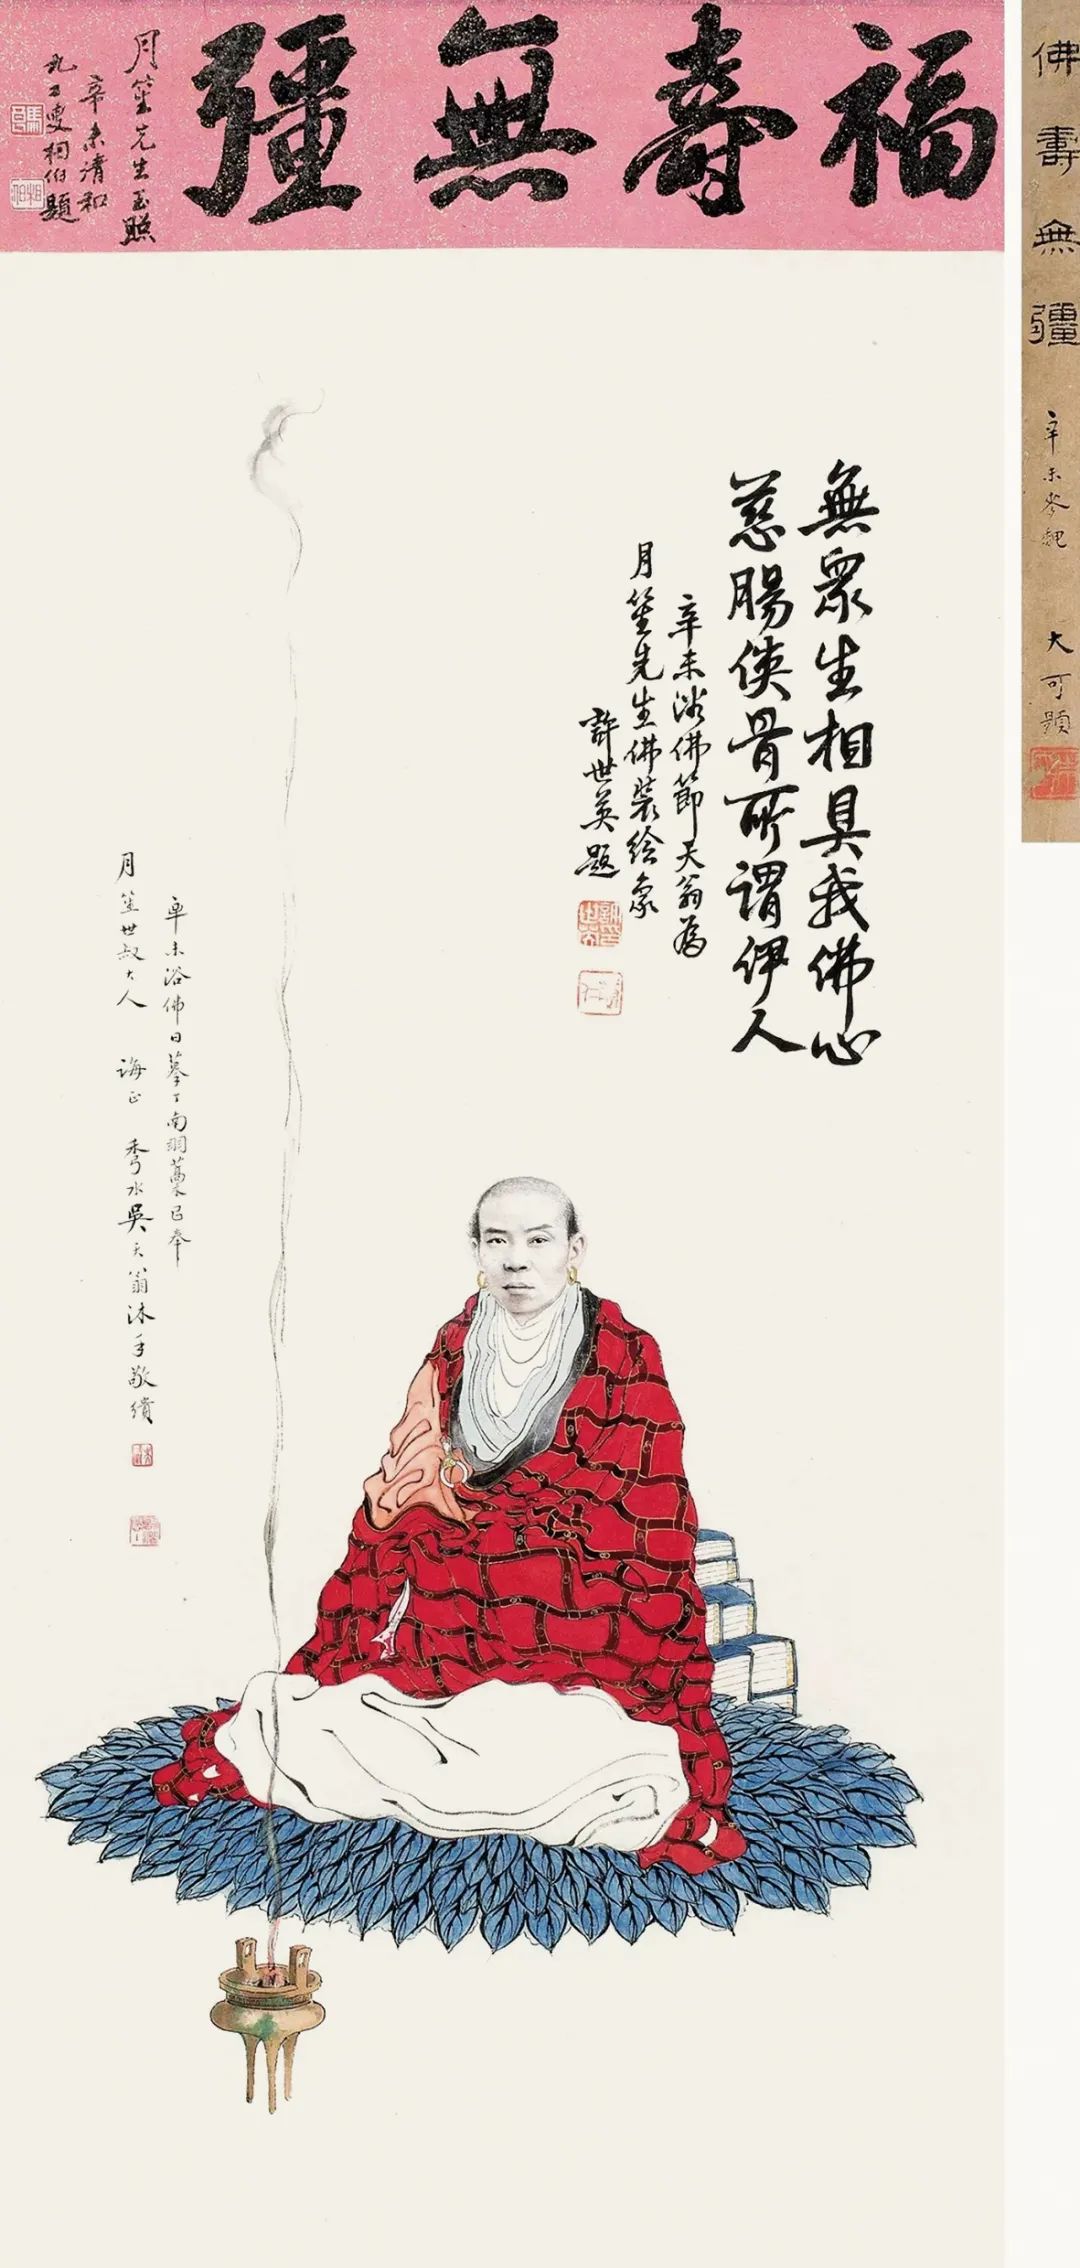 福壽無疆
月笙先生玉照
辛未清和
九二叟相伯題
佛壽無疆
辛未
大可題
無眾生相具我佛心
慈腸俠骨所謂伊人
辛未浴佛節天翁為
月笙先生佛裝繪象
許世英題
辛未浴佛日摹丁南羽藁呂奉
月笙世叔大人 誨正 秀水吳天翁沐手敬繢